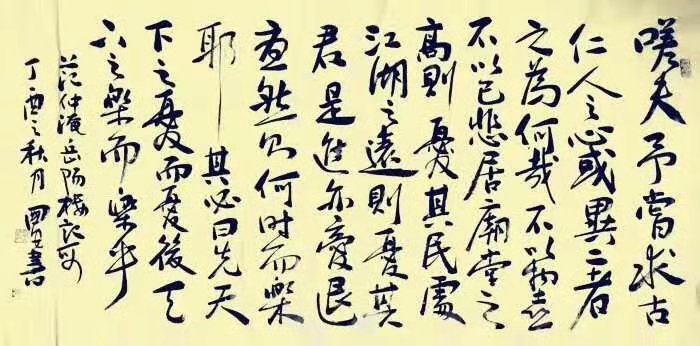 嗟夫予嘗求古
仁人之心或異二者
之為何哉不以物喜
不以己悲居廟堂之
高則憂其民處
江湖之遠則憂其
君是進亦憂退
亦憂然则何时而樂
耶其必曰先天
下之憂而憂後天
下之樂而樂乎
范仲淹岳陽樓記
丁酉之秋月書